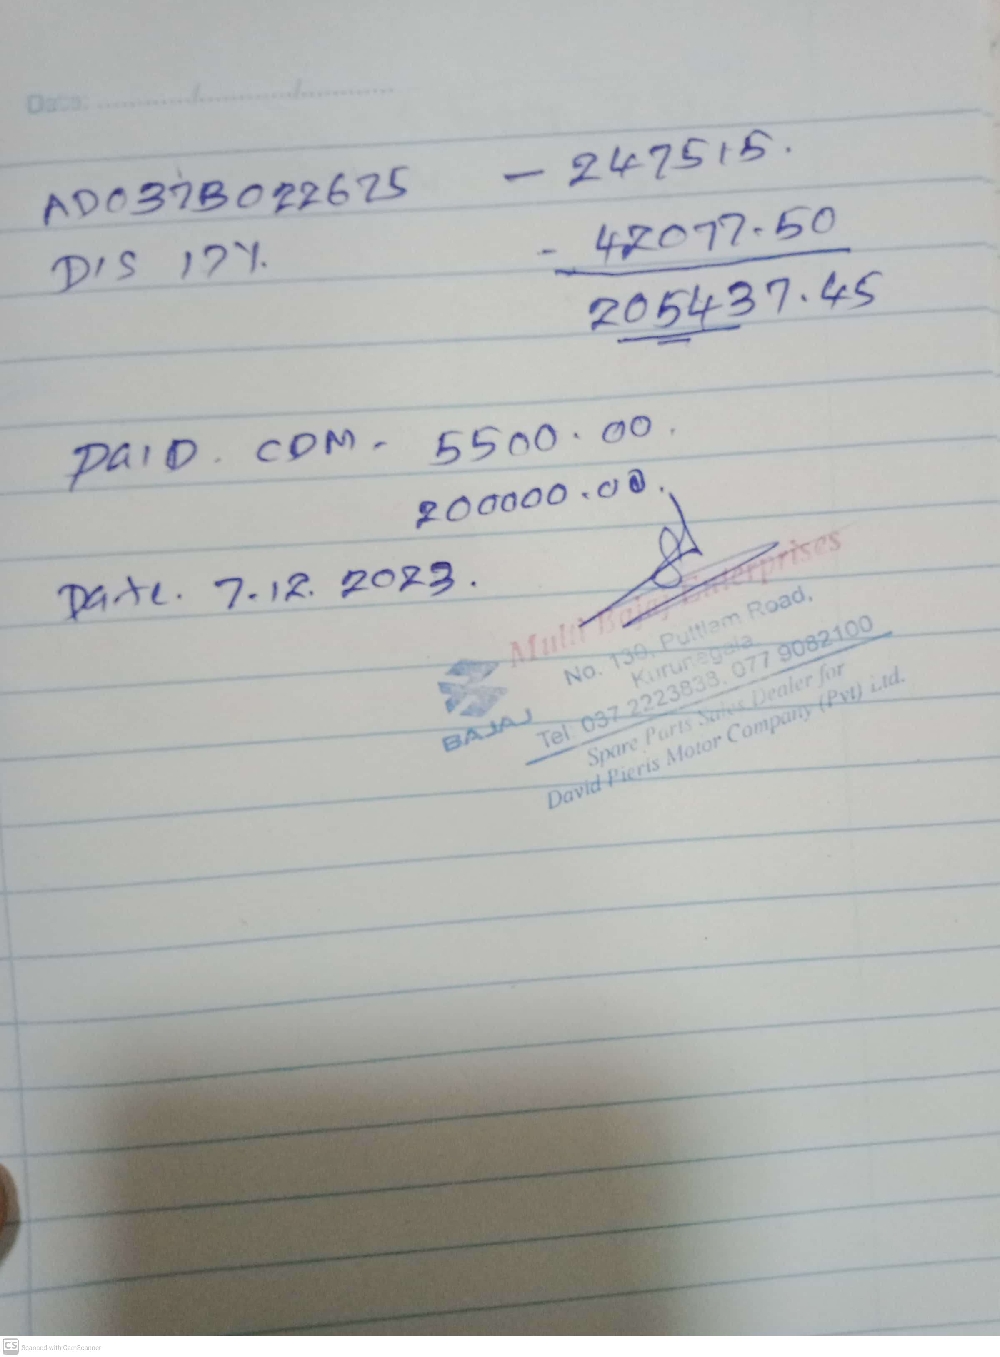 Date: ............/............/............
AD037B022675 - 247515.
DIS 17%. - 42077.50
205437.45
PAID. CDM - 5500.00.
200000.00.
Date. 7.12.2023.
Multi Bajaj Enterprises
No. 139, Puttlam Road,
Kurunegala
Tel: 037 2223833, 077 9082100
BAJAJ
Spare Parts Sales Dealer for
David Pieris Motor Company (Pvt) Ltd.
CS Scanned with CamScanner